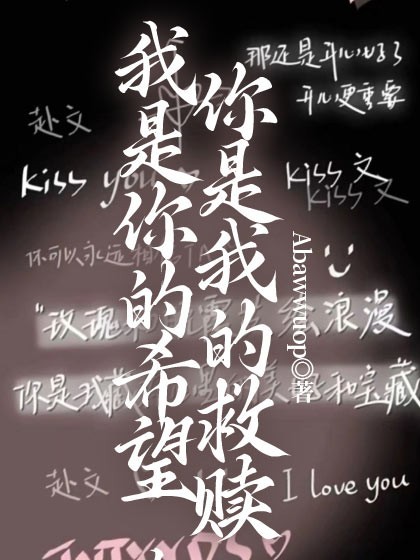 我是你的希望
你是我的救赎
Abawwuop◎著
那还是开心好了
开心更重要
赴文
kiss you
kiss 文
kiss 文
你可以永远相
"玫瑰
浪漫
你是我藏
和宝藏
赴文
I love you